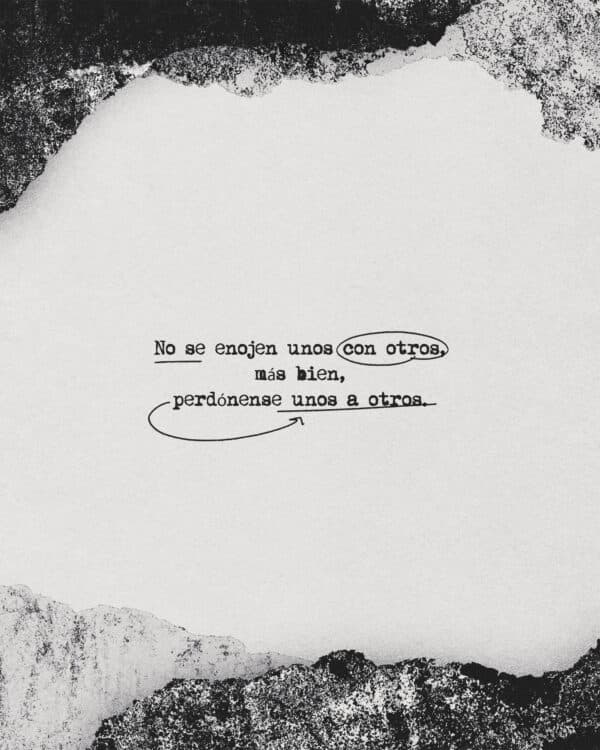 No se enojen unos con otros,
más bien,
perdónense unos a otros.